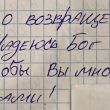 о возвраще
надеюсь Бог
обы Вы мно
ами!